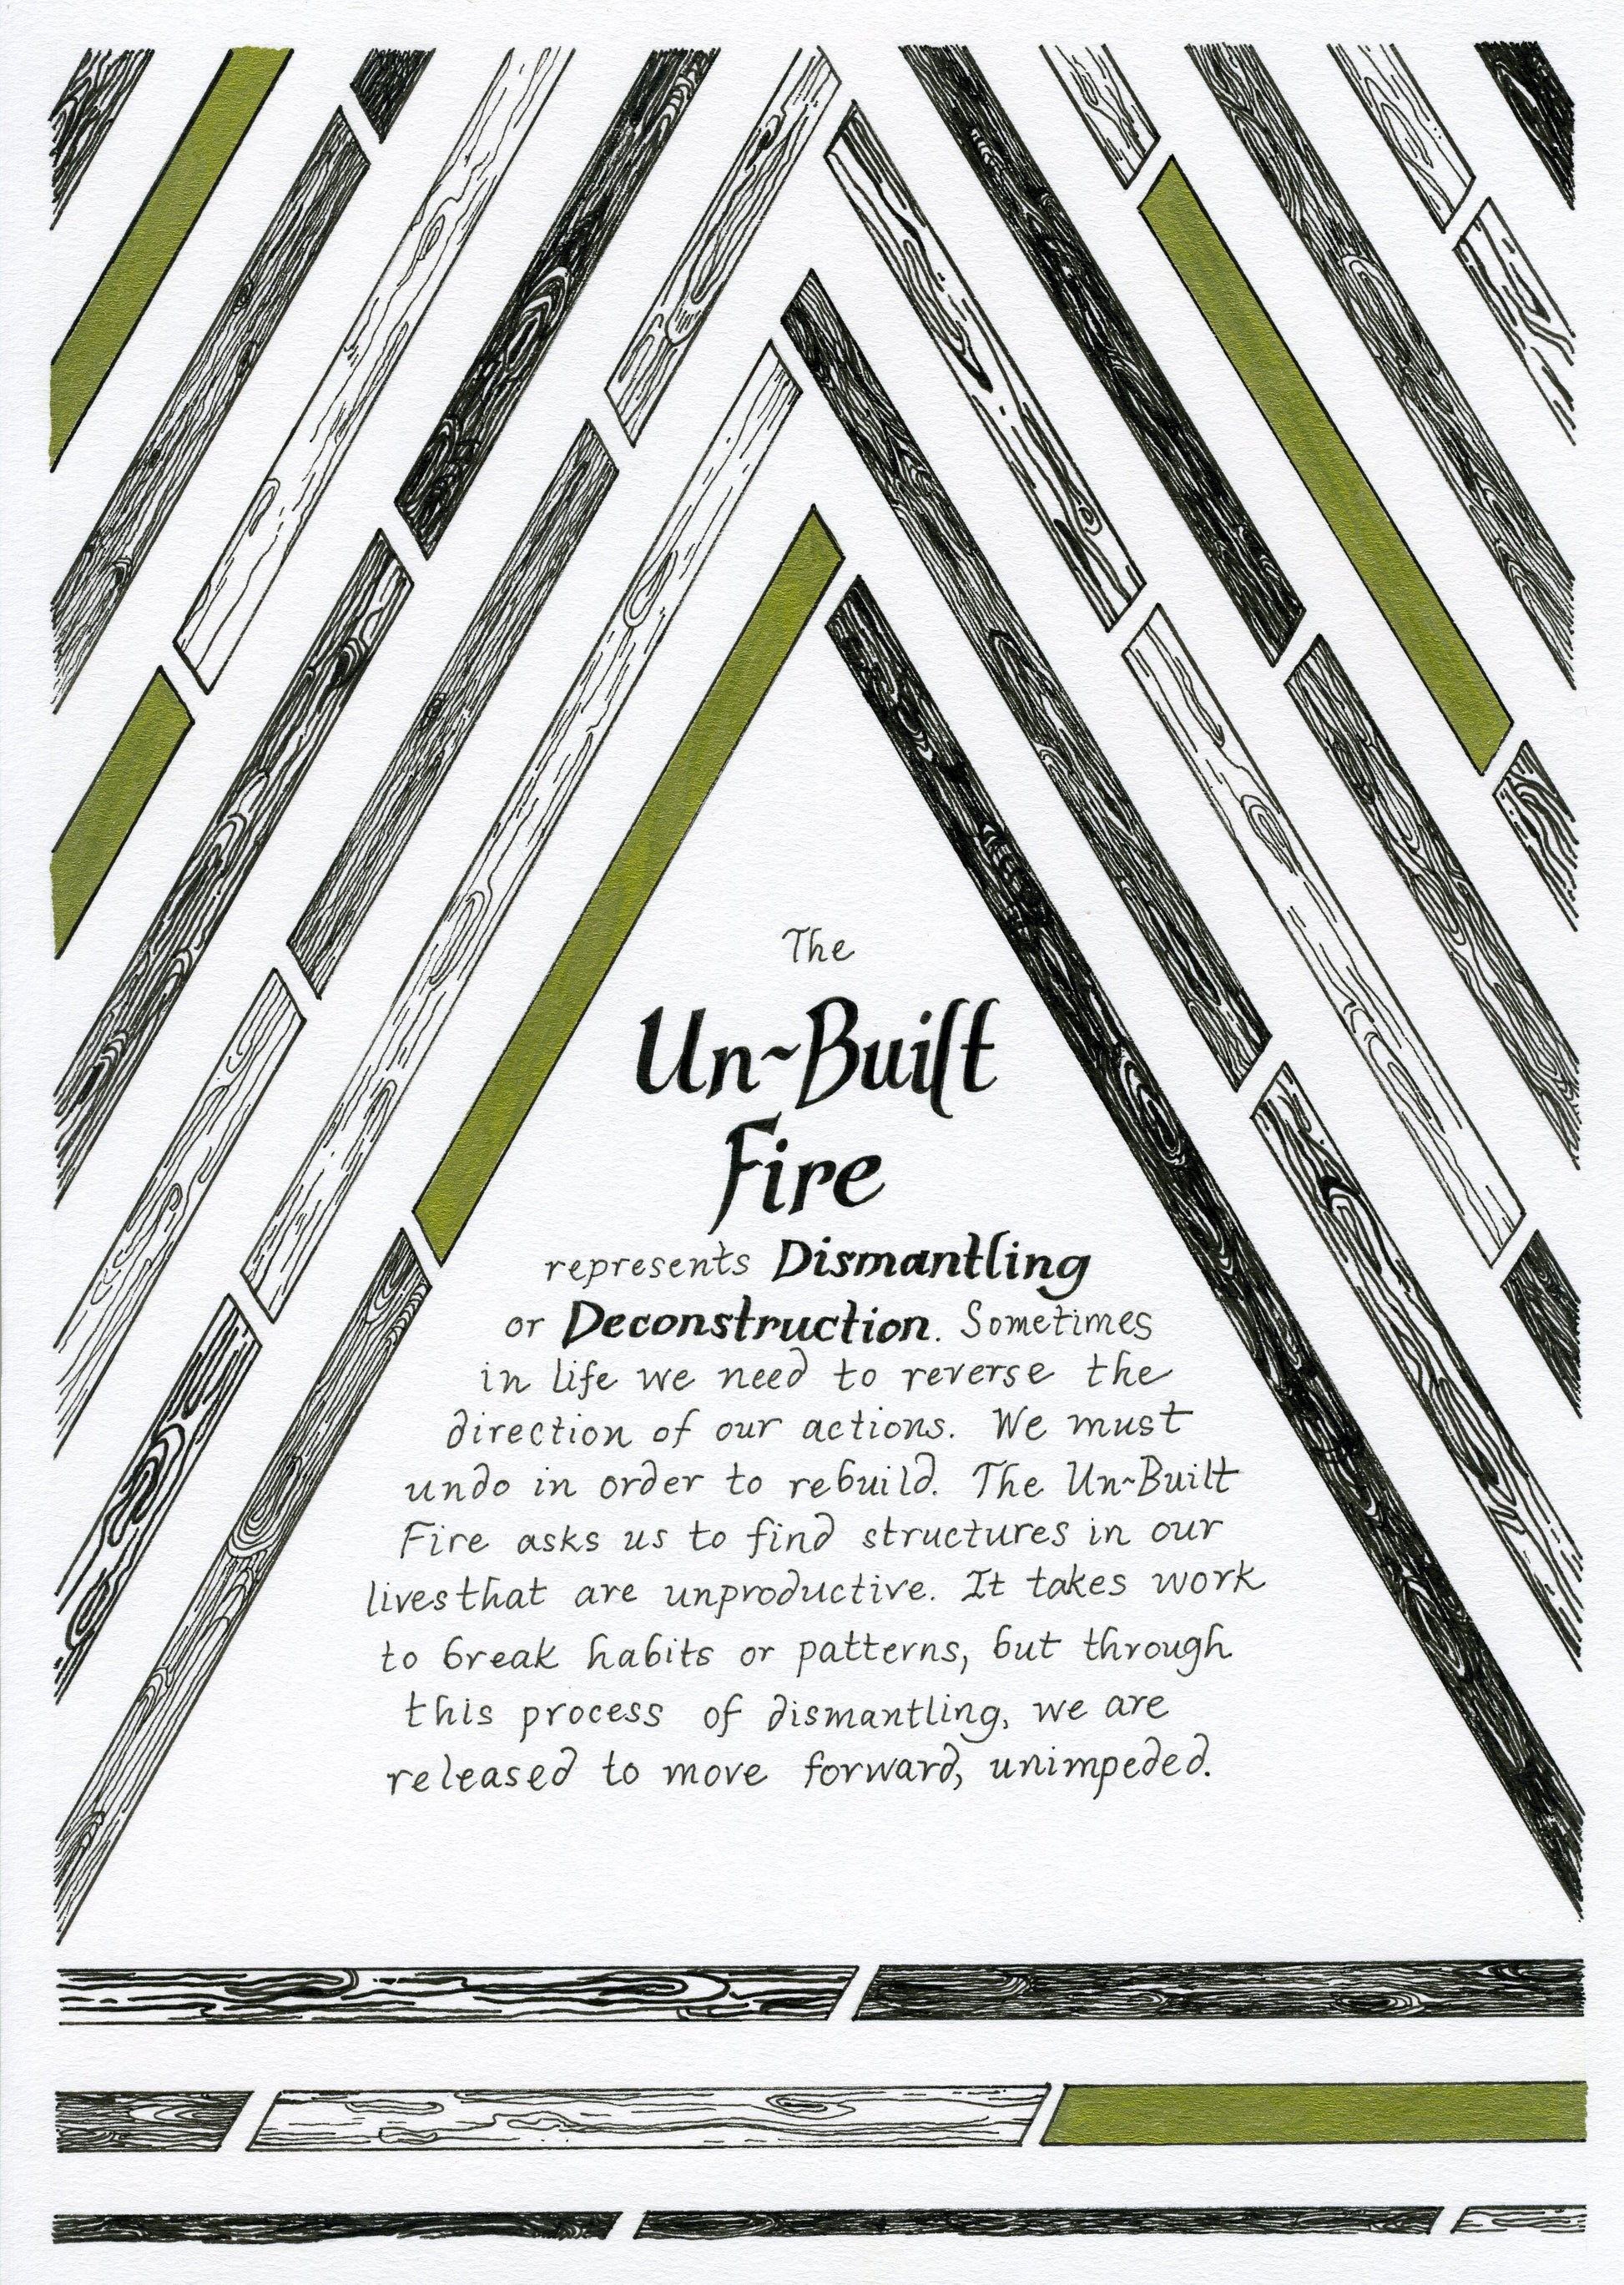 The
Un~Built
Fire
represents Dismantling
or Deconstruction. Sometimes
in life we need to reverse the
direction of our actions. We must
undo in order to rebuild. The Un~Built
Fire asks us to find structures in our
lives that are unproductive. It takes work
to break habits or patterns, but through
this process of dismantling, we are
released to move forward, unimpeded.